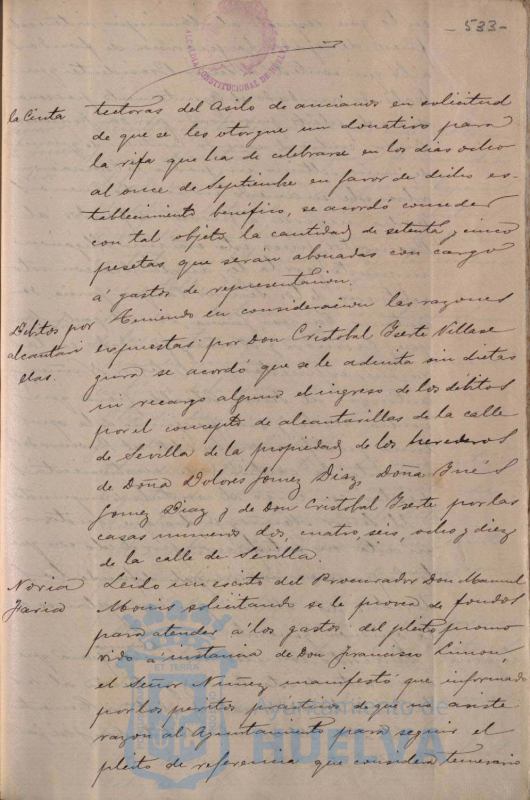 - 533 -
ALCALDIA CONSTITUCIONAL DE HUELVA
la Cinta
tectoras del Asilo de ancianos en solicitud
de que se les otorgue un donativo para
la rifa que ha de celebrarse en los dias ocho
al once de Septiembre en favor de dicho es-
tablecimiento benéfico, se acordó conceder
con tal objeto la cantidad de setenta y cinco
pesetas que serán abonadas con cargo
á gastos de representacion.
Debitos por
alcantari
llas.
Teniendo en consideracion las razones
expuestas por Don Cristobal Yserte Villase
gura se acordó que se le admita sin dietas
ni recargo alguno el ingreso de los débitos
por el concepto de alcantarillas de la calle
de Sevilla de la propiedad de los herederos
de Doña Dolores Gomez Diaz, Doña Ynés
Gomez Diaz y de Don Cristobal Yserte por las
casas numeros dos, cuatro, seis, ocho y diez
de la calle de Sevilla.
Noria
Faria
Leido un escrito del Procurador Don Manuel
Monis solicitando se le provea de fondos
para atender á los gastos del pleito promo
vido a instancia de Don Francisco Limon,
el Señor Nuñez manifestó que informado
por los peritos practicos de que no asiste
razon al Ayuntamiento para seguir el
pleito de referencia que considera temerario
Ayuntamiento de
HUELVA